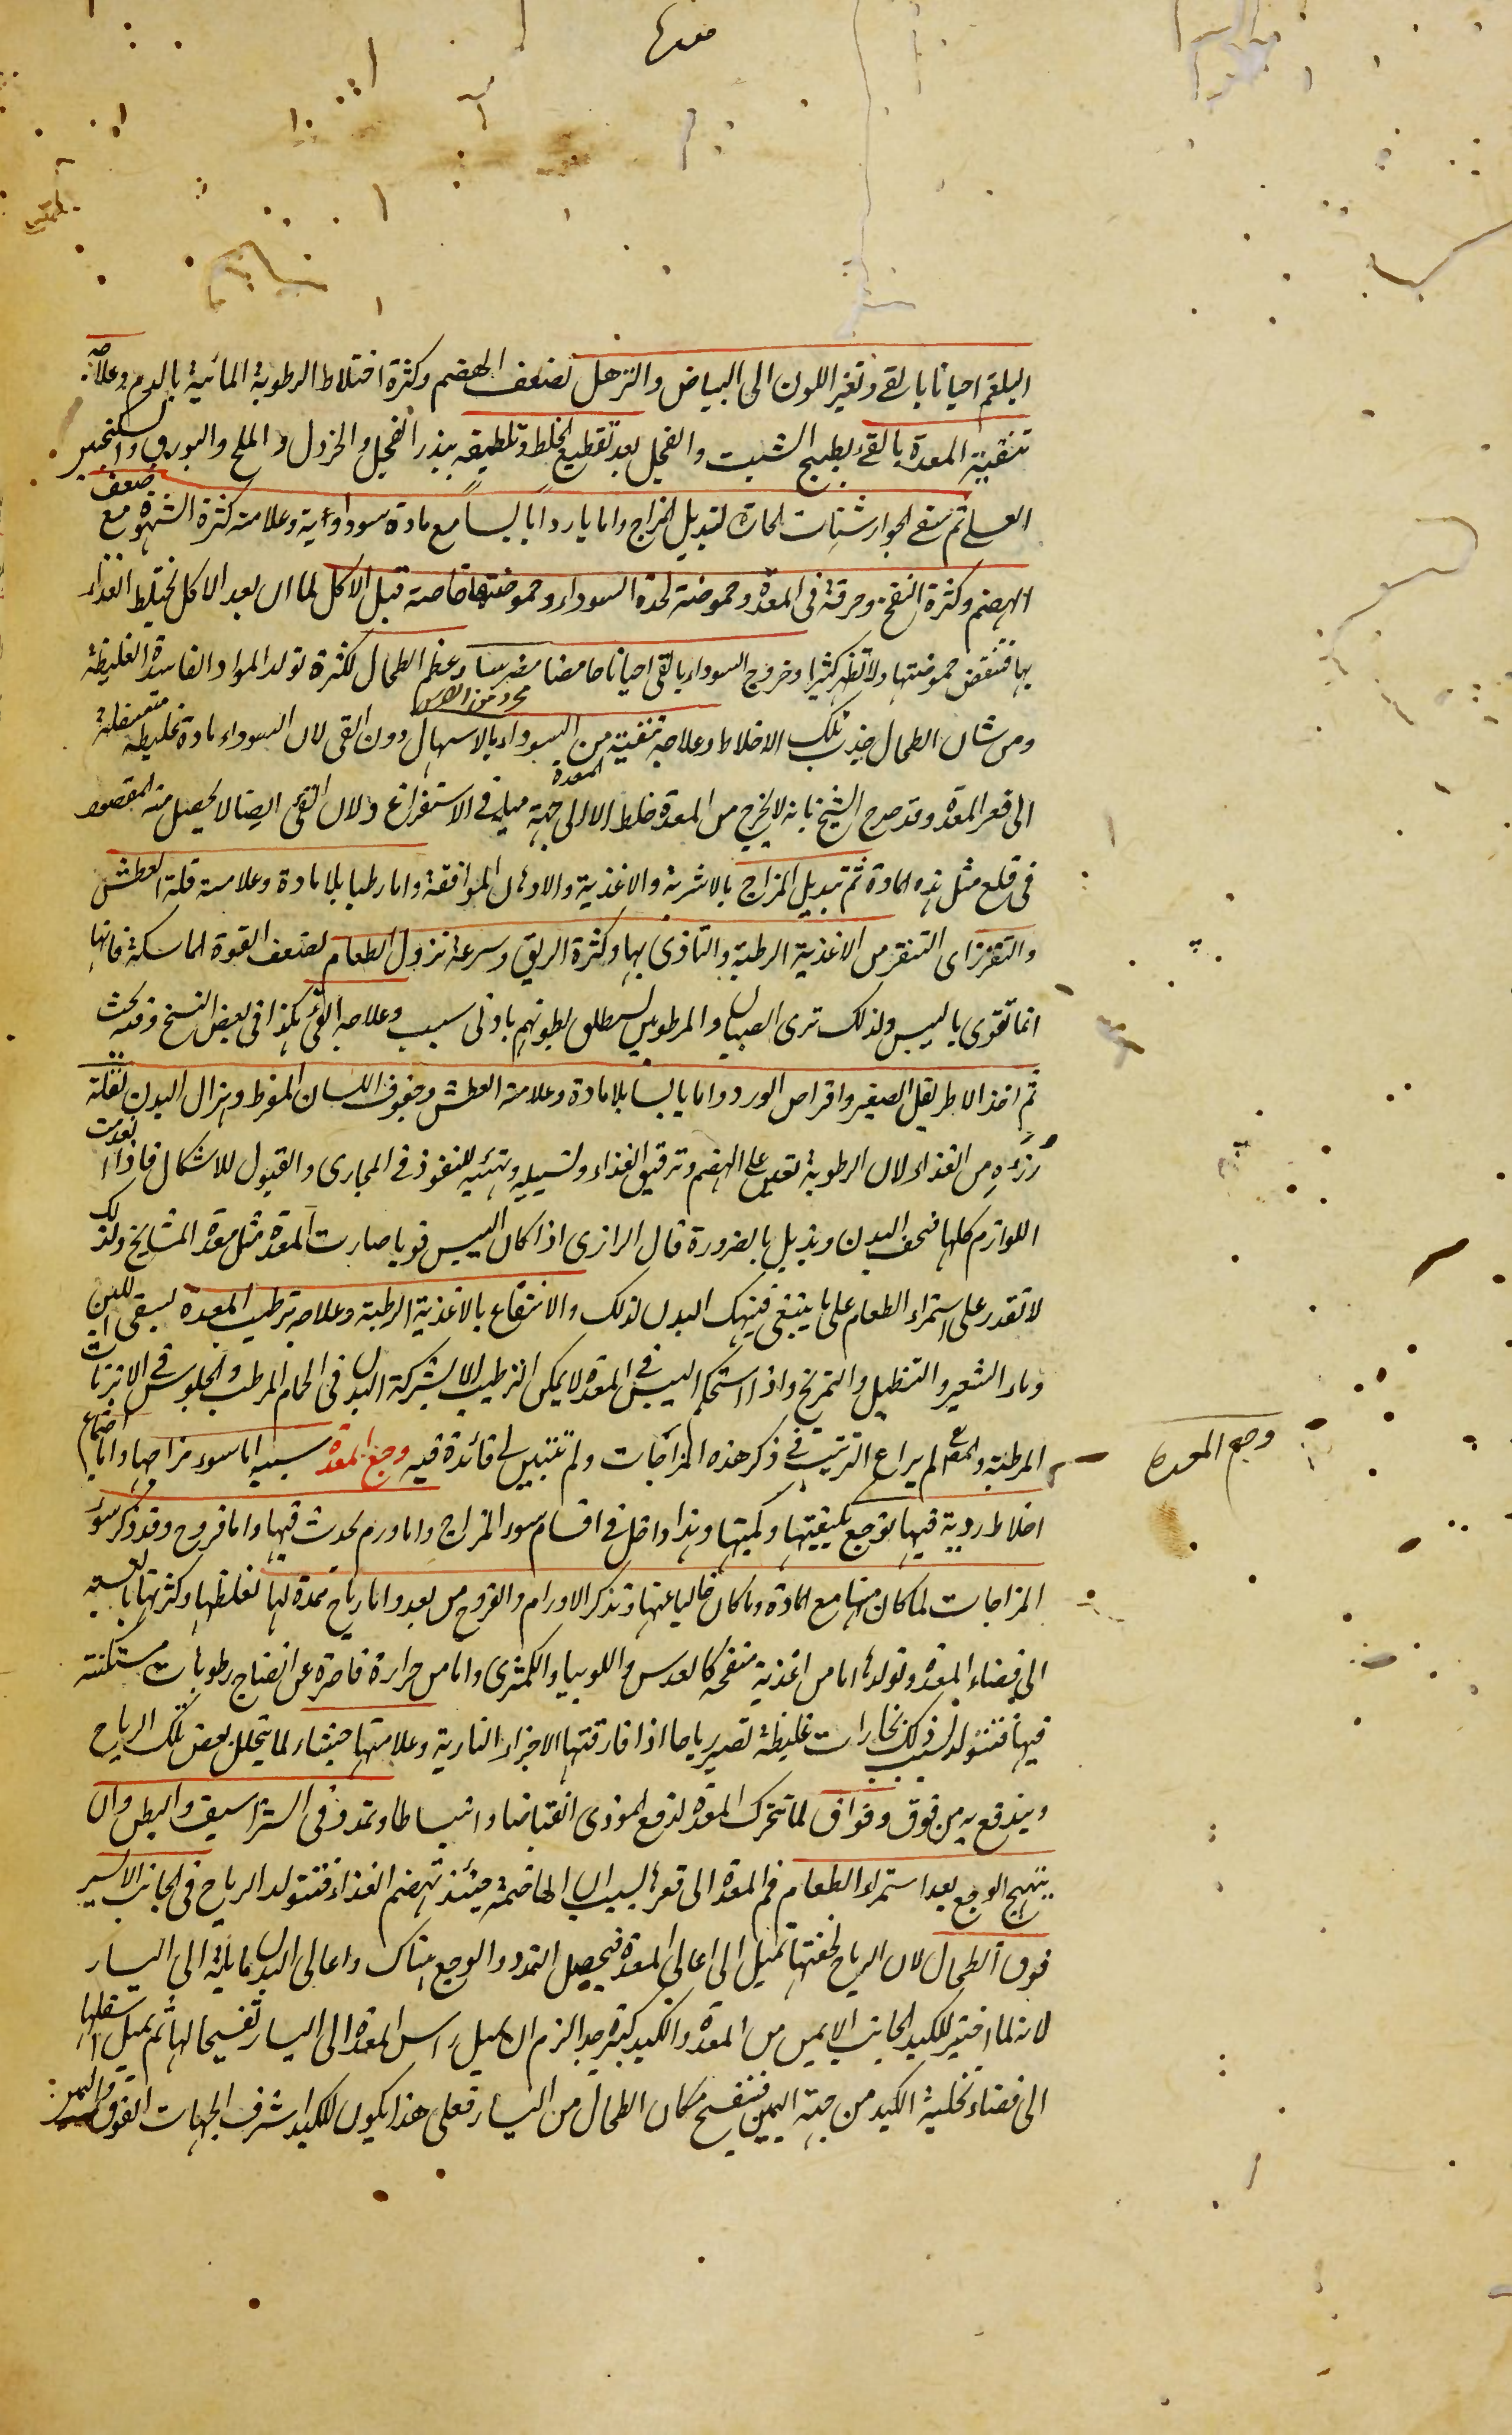 معدة
البلغم احيانا بالقئ وتغير اللون الى البياض والترهل لضعف الهضم وكثرة اختلاط الرطوبة المائية بالدم وعلاجه
تنقية المعدة بالقئ بطبيخ الشبت والفجل بعد تقطيع الخلط وتلطيفه ببذر الفجل والخردل والملح والبورق والسكنجبين
العسلي ثم سقي الجوارشنات الحارة لتبديل المزاج واما باردا يابساً مع مادة سوداوية وعلامته كثرة الشهوة مع ضعف
الهضم وكثرة النفخ وحرقة فى المعدة وحموضة لحدة السوداء وحموضتها خاصة قبل الاكل لما ان بعد الاكل يختلط الغذاء
بها فتنقص حموضتها ولا تظهر كثيرا وخروج السوداء بالقئ احيانا حامضا مضرسا وعظم الطحال لكثرة تولد المواد الفاسدة الغليظة
ومن شان الطحال جذب تلك الاخلاط وعلاجه تنقية من السوداء بالاسهال دون القى لان السوداء مادة غليظة متسفلة
الى قعر المعدة وقد صرح الشيخ بانه لا يخرج من المعدة خلط الا الى جهة ميله فى الاستفراغ ولان القئ ايضا لا يحصل منه المقصود
فى قلع مثل هذه المادة ثم تبديل المزاج بالاشربة والاغذية والادهان الموافقة واما رطبا بلا مادة وعلامته قلة العطش
والتقزز اى التنفر من الاغذية الرطبة والتاذى بها وكثرة الريق وسرعة نزول الطعام لضعف القوة الماسكة فانها
انما تقوى باليبس ولذلك ترى الصبيان والمرطوبين يستطلق بطونهم بادنى سبب وعلاجه القئ هكذا فى بعض النسخ وفيه بحث
ثم اخذ الاطريفل الصغير واقراص الورد واما يابسا بلا مادة وعلامته العطش وجفوف اللسان المفرط وهزال البدن لقلة
رزءه من الغذاء لان الرطوبة تعين على الهضم وترقيق الغذاء وتسييله وتهيئه للنفوذ فى المجارى والقبول للاشكال فاذا عدمت
اللوازم كلها نحف البدن ويذبل بالضرورة قال الرازى اذا كان اليبس قويا صارت المعدة مثل معدة المشايخ ولذلك
لا تقدر على استمراء الطعام على ما ينبغى فينهك البدن لذلك والانتفاع بالاغذية الرطبة وعلاجه ترطيب المعدة بسقى اللبن
وماء الشعير والتنطيل والتمريخ واذا استحكم اليبس فى المعدة لا يمكن الترطيب الا بشركة البدن فى الحمام المرطب والجلوس فى الابزنات
المرطبة والمص لم يراع الترتيب فى ذكر هذه المزاجات ولم تتبين لى فائدة فيه وجع المعدة سببه اما سوء مزاجها واما اجتماع
وجع المعدة
اخلاط ردية فيها توجع بكيفيتها وكميتها وهذا داخل فى اقسام سوء المزاج واما ورم يحدث فيها واما قروح وقد ذكر سوء
المزاجات لما كان منها مع المادة وما كان خاليا عنها وتذكر الاورام والقروح من بعد واما رياح ممددة لها لغلظها وكثرتها بالنسبة
الى فضاء المعدة وتولدها اما من اغذية منفخة كالعدس واللوبيا والكمثرى واما من حرارة قاصرة عن انضاج رطوبات مستكنة
فيها فتتولد لسبب ذلك بخارات غليظة تصير رياحا اذا فارقتها الاجزاء النارية وعلامتها جشاء لما يتحلل بعض تلك الرياح
ويندفع به من فوق وفواق لما تتحرك المعدة لدفع الموذى انقباضا وانبساطا وتمدد فى الشراسيف والبطن وان
يتهيج الوجع بعد استمراء الطعام فم المعدة الى قعرها لسبب ان الهاضمة حينئذ تهضم الغذاء فتتولد الرياح فى الجانب الايسر
فوق الطحال لان الرياح لخفتها تميل الى اعالى المعدة فيحصل التمدد والوجع هناك واعالى البدن مائلة الى اليسار
لانه لما اختير للكبد الجانب الايمن من المعدة والكبد كبيرة جدا لزم ان يميل راس المعدة الى اليسار تفسيحا لها ثم يميل اسفلها
الى فضاء تخلية الكبد من جهة اليمين فتنفسح مكان الطحال من اليسار فعلى هذا يكون للكبد اشرف الجهات الفوق واليمين